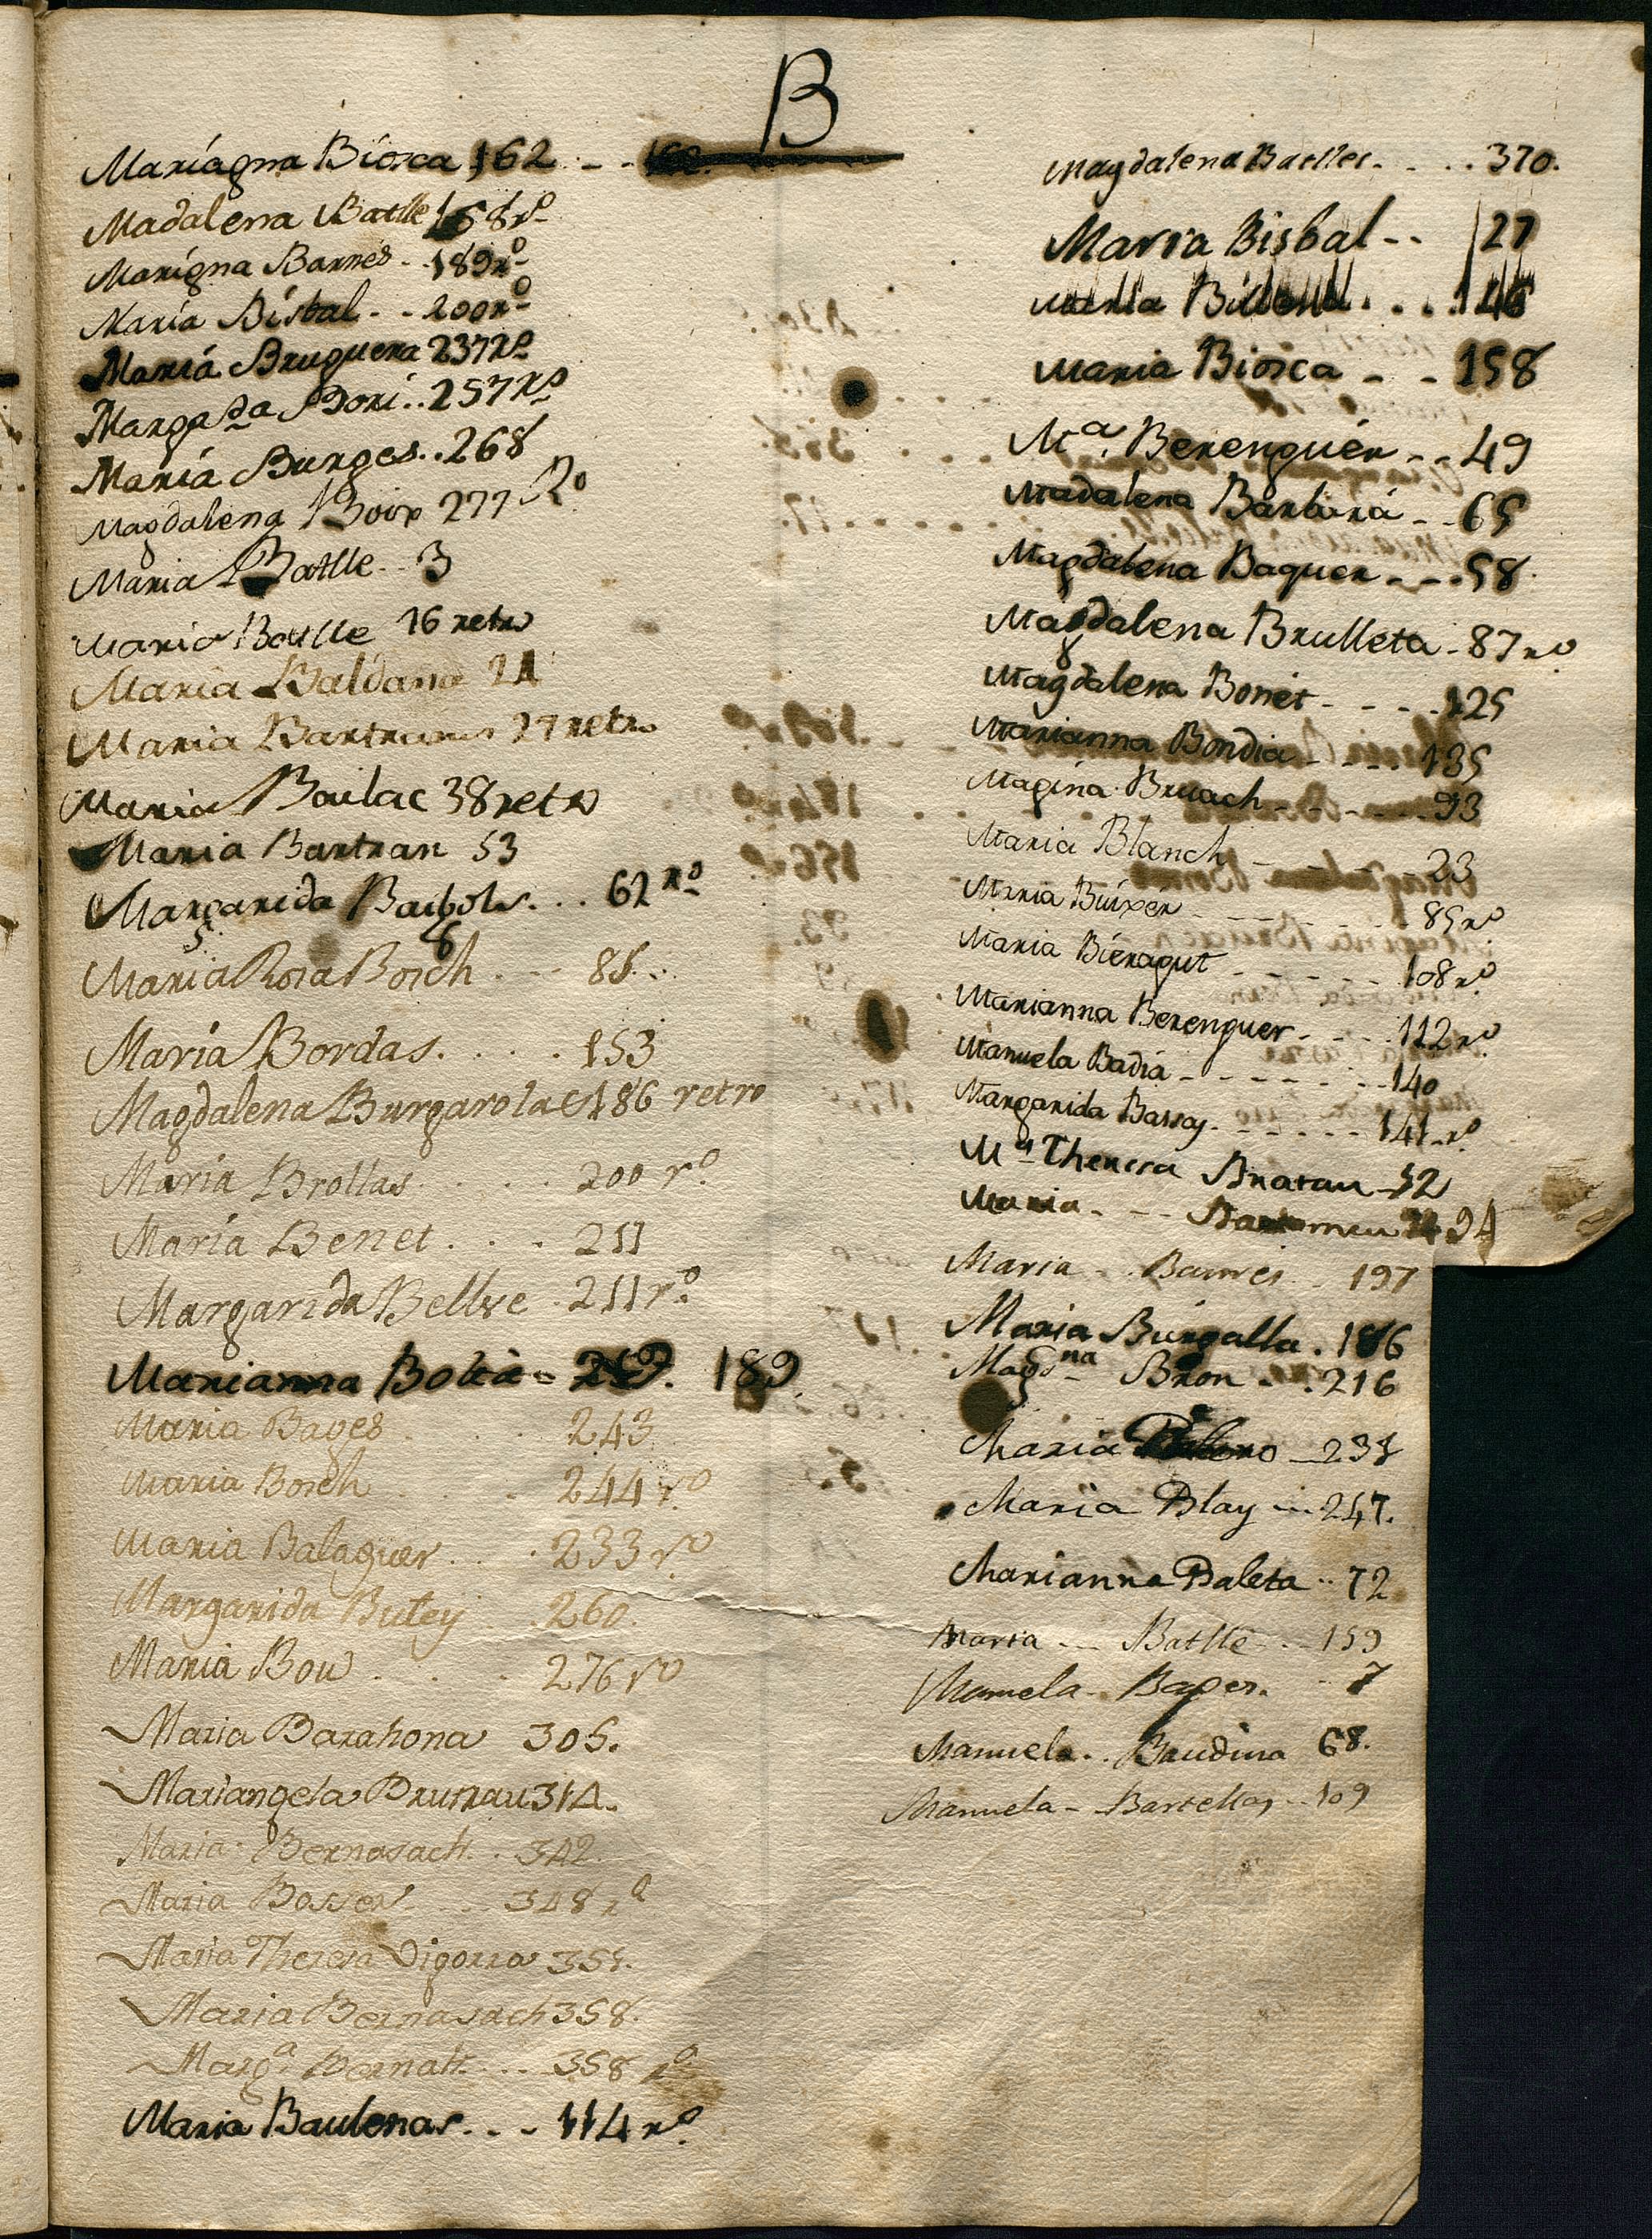 B
Mariágna Biosca 162 - -
Madalena Batlle 168 rº
Marígna Barnes - - 189 rº
María Bisbal - - 200 rº
Mariá Bruguera 237 Rº
Margada Bori . . 257 Rº
María Burges . . 268
Magdalena Boix 277 Ro
Maria Batlle - - 3
Maria Batlle 16 retro
Maria Baldana 21
Maria Bartrans 27 retro
Maria Bailac 38 retro
Maria Bartran 53
Margarida . . . 62 rº
Maria Rosa Bosch . - - 85 . .
María Bordas . . . . 153
Magdalena Burgarolas 186 retro
María Brollas . . . . 200 rº
María Benet . . . 211
Margarida Bellve . 211 rº
Marianna 189
Maria Bages . . . 243
Maria Bosch . . . 244 rº
Maria Balaguer . . . 233 rº
Margarida Butey . 260.
Maria Bou . . . 276 rº
Maria Barahona 305.
Mariangela Brunau 314.
Maria Bernasach . . 342.
Maria Bosser . . . 348 rº
Maria Theresa Bigorra 351.
Maria Bernasach 358.
Margª Bernatt . . . 358 rº
Maria Baulenas . . - 114 rº
Magdalena Batlles - . . . 370.
Maria Bisbal - - 127
Maria . . . . 146
Maria Biosca - - 158
Mª. Berenguér - - 49
Madalena Barbará - - 65
Magdalena Baquer - - . 58.
Magdalena Brulleta - 87 rº
Magdalena Bonét - - - - . 125
Marianna Bondia - - - - 135
Magina Bruach - - - - - . 93
Maria Blanch - - - - - 23
Maria Buixér - - - - - - 85 rº
Maria Bieragut - - - - - - 108 rº
Marianna Berenguer - - - . 112 rº
Manuela Badia - - - - - - - 140
Margarida Bassas - - - - - - 141 rº
Mª Theresa Bratau - 52
Maria - - - 94
Maria - . Barnés - 197
Maria Burgalla . 186
Magdna Bron - . 216
Maria 231
Maria Blay - - 247.
Marianna Baleta . . 72
Maria - - Batlle - . 159
Manuela - Bages . - 7
Manuela . . Baudina 68.
Manuela - - Bartellas - - 109